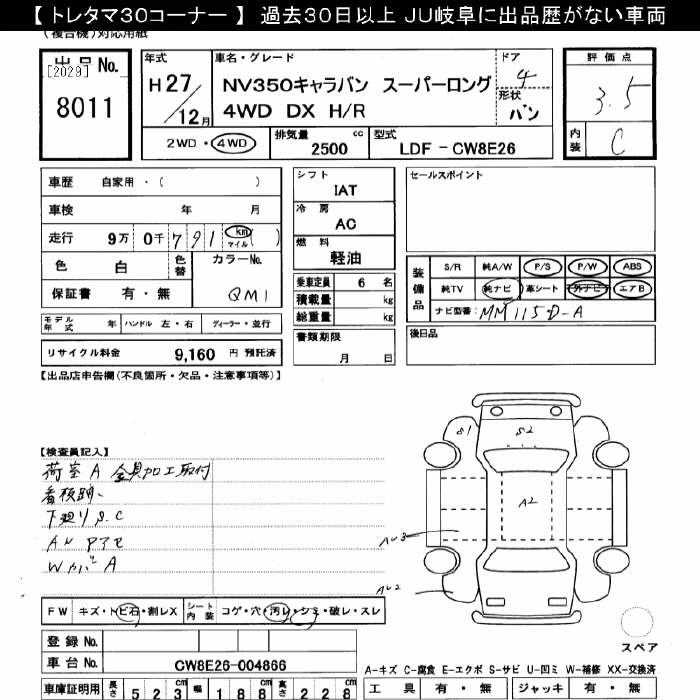 【 トレタマ30コーナー 】 過去30日以上 JU岐阜に出品歴がない車両
(複合機)対応用紙
出品 No.
[2029]
8011
年式
H27/12月
車名・グレード
NV350キャラバン スーパーロング
4WD DX H/R
ドア
4
形状
バン
評価点
3.5
内装
C
2WD・4WD
排気量
2500 cc
型式
LDF - CW8E26
車歴 自家用・( )
車検 年 月
走行 9万 0千 791 km マイル ( )
色 白
色替
カラーNo.
QM1
保証書 有・無
モデル年式 年
ハンドル 左・右
ディーラー・並行
リサイクル料金 9,160 円 預託済
シフト
IAT
冷房
AC
燃料
軽油
乗車定員 6 名
積載量 kg
総重量 kg
書類期限
月 日
セールスポイント
装備品
S/R 純A/W P/S P/W ABS
純TV 純ナビ 革シート 外ナビ エアB
ナビ型番: MM115D-A
後日品
【出品店申告欄(不良箇所・欠品・注意事項等)】
【検査員記入】
荷室A 金具加工取付
下廻りS.C
S1
S2
A2
FW キズ・トビ石・割レX
シート内装 コゲ・穴・汚レ・シミ・破レ・スレ
登録 No.
車台 No. CW8E26-004866
車庫証明用 長さ 523 幅 188 高さ 228
スペア
A-キズ C-腐食 E-エクボ S-サビ U-凹ミ W-補修 XX-交換済
工具 有・無 ジャッキ 有・無